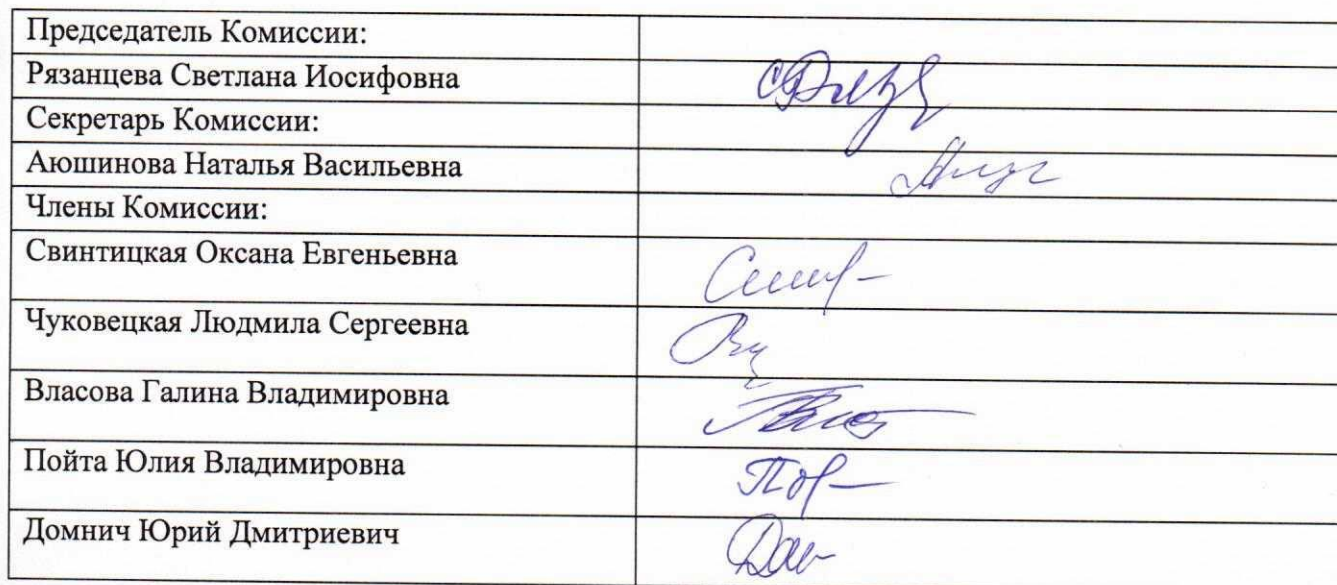 Председатель Комиссии:
Рязанцева Светлана Иосифовна
Секретарь Комиссии:
Аюшинова Наталья Васильевна
Члены Комиссии:
Свинтицкая Оксана Евгеньевна
Чуковецкая Людмила Сергеевна
Власова Галина Владимировна
Пойта Юлия Владимировна
Домнич Юрий Дмитриевич